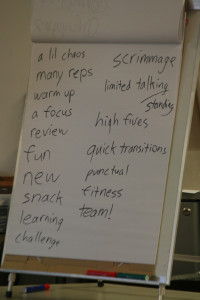 a lil chaos
many reps
warm up
a focus
review
fun
new
snack
learning
challenge
scrimmage
limited talking
standing
high fives
quick transitions
punctual
fitness
team!